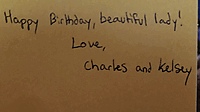 Happy Birthday, beautiful lady!
Love,
Charles and Kelsey